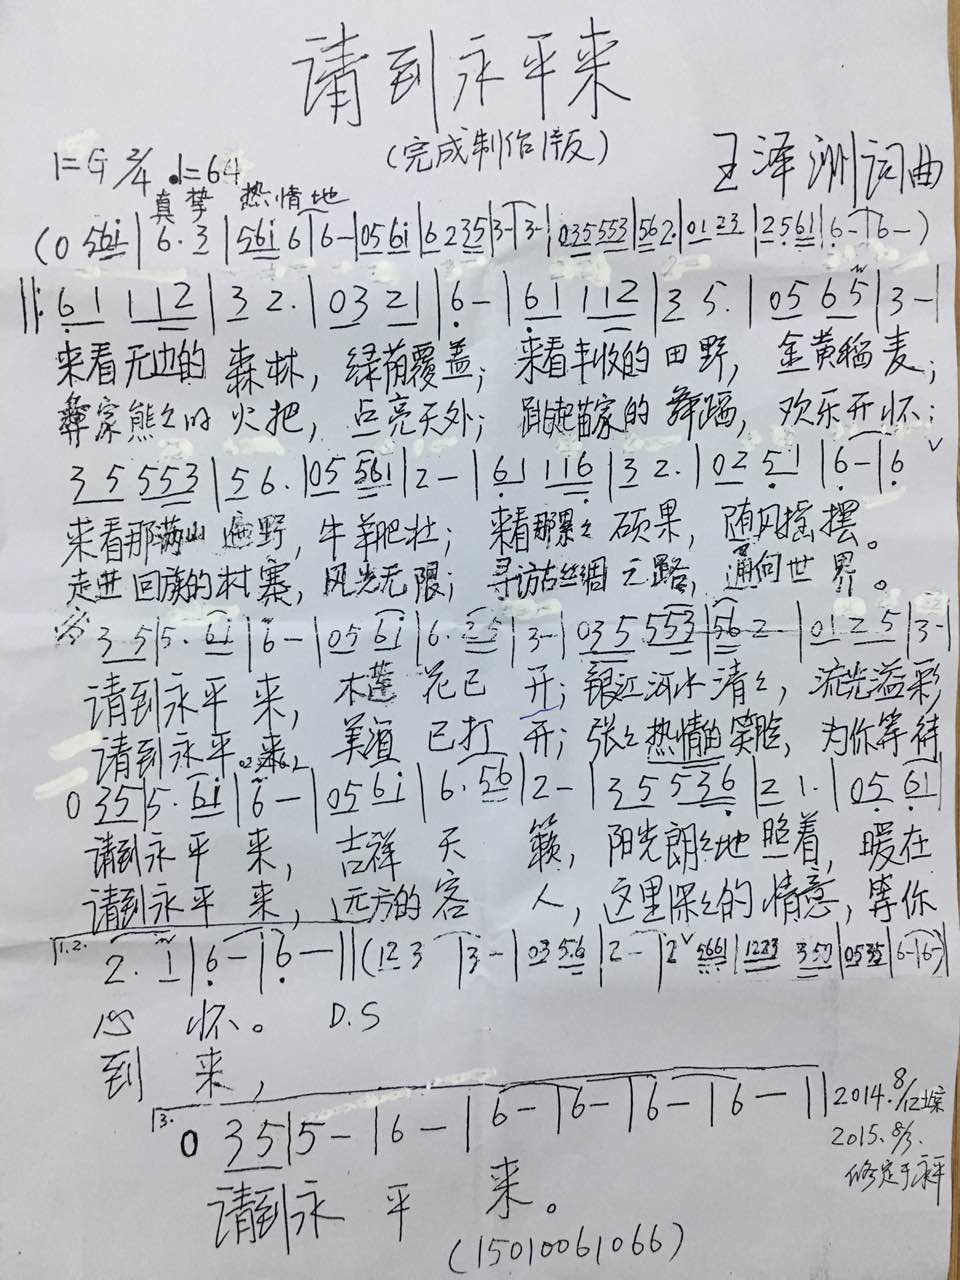 请到永平来
(完成制作版)
1=G 2/4 ♩=64
王泽洲词曲
真挚 热情地
(0 56i | 6· 3 | 56i 6 | 6- | 05 6i | 6 235 | 3- | 3- | 035 553 | 56 2· | 01 23 | 2 5 61 | 6- | 6- )
‖: 61 112 | 3 2· | 03 21 | 6- | 61 112 | 3 5· | 05 65 | 3- |
来看无边的 森林, 绿荫覆盖; 来看丰收的 田野, 金黄稻麦;
彝家熊熊的 火把, 点亮天外; 跳起苗家的 舞蹈, 欢乐开怀;
35 553 | 5 6· | 05 561 | 2- | 61 116 | 3 2· | 02 51 | 6- | 6 ∨
来看那满山 遍野, 牛羊肥壮; 来看那累累 硕果, 随风摇 摆。
走进 回族的村寨, 风光无限; 寻访古丝绸 之路, 通向世 界。
35 | 5· 6i | 6- | 05 6i | 6· 35 | 3- | 035 553 | 56 2 | 01 25 | 3- |
请到永平 来, 木莲 花已 开; 银江河水 清清, 流光溢彩
请到永平 来, 美酒 已打 开; 张张热情的笑脸, 为你等待
0 35 | 5· 6i | 6- | 05 6i | 6· 56 | 2- | 35 536 | 2 1· | 05 61 |
请到永平 来, 吉祥 天 籁, 阳光朗朗地 照着, 暖在
请到永平 来, 远方的客 人, 这里深深的 情意, 等你
1.2. 2· 1 | 6- | 6- ‖ (12 3 | 3- | 03 56 | 2- | 2 ∨ 5661 | 1223 350 | 0535 | 6- | 6-) |
心 怀。 D.S
到 来,
3. 0 35 | 5- | 6- | 6- | 6- | 6- | 6- ‖
请到永 平 来。
2014.8/
2015.8/3.
修定于永平
(15010061066)